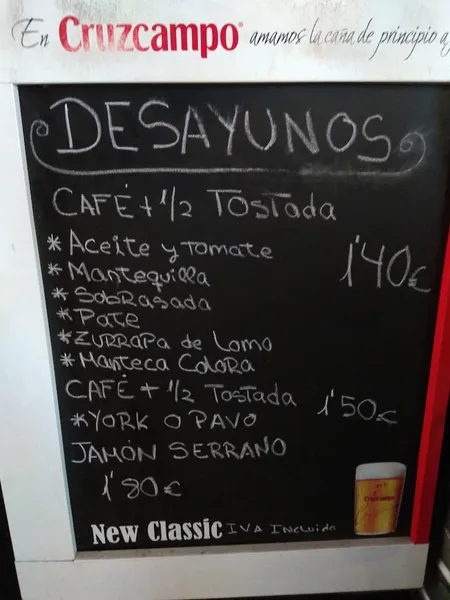 En Cruzcampo® amamos la caña de principio a
DESAYUNOS
CAFÉ + 1/2 Tostada
* Aceite y Tomate
1'40€
* Mantequilla
* Sobrasada
* Pate
* Zurrapa de Lomo
* Manteca Colora
CAFÉ + 1/2 Tostada
1'50€
* YORK O PAVO
JAMÓN SERRANO
1'80€
New Classic IVA Incluido
Cruzcampo